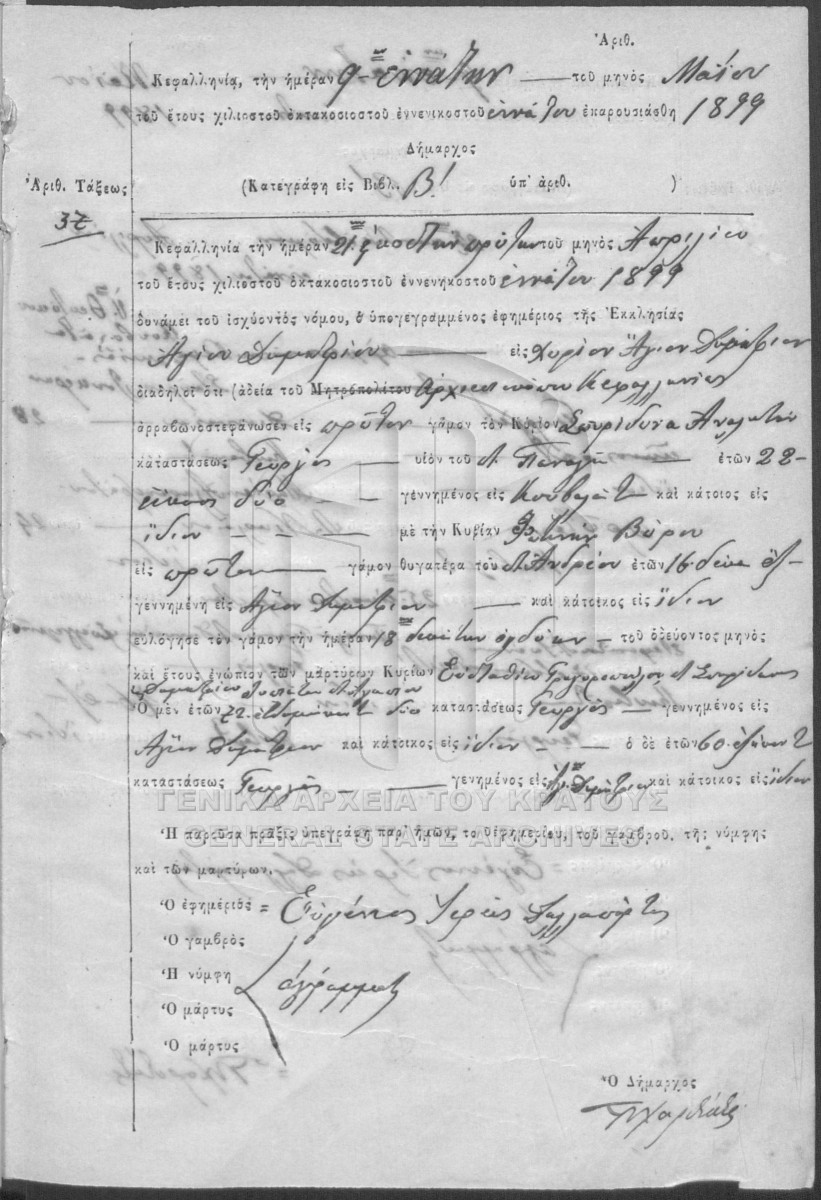 Ἀριθ.
Κεφαλληνία, τὴν ἡμέραν 9 ἐννάτην τοῦ μηνὸς Μαΐου
τοῦ ἔτους χιλιοστοῦ ὀκτακοσιοστοῦ ἐννενικοστοῦ ἐννάτου ἐπαρουσιάσθη 1899
Δήμαρχος
Ἀριθ. Τάξεως
(Κατεγράφη εἰς Βιβλ. Β! ὑπ' ἀριθ. )
37
Κεφαλληνία τὴν ἡμέραν 21 εἰκοστην πρώτην τοῦ μηνὸς Ἀπριλίου
τοῦ ἔτους χιλιοστοῦ ὀκτακοσιοστοῦ ἐννενήκοστοῦ ἐννάτου 1899
δυνάμει τοῦ ἰσχύοντὸς νόμου, ὁ ὑπογεγραμμένος ἐφημέριος τῆς Ἐκκλησίας
Ἁγίου Δυμητρίου εἰς χωρίον Ἅγιον Δυμήτριον
διαδηλοῖ ὅτι (ἀδεία τοῦ Μητροπολίτου Ἀρχιεπισκόπου Κεφαλληνίας
ἀρραβωνοστεφάνωσεν εἰς πρῶτον γάμον τὸν Κύριον Σπυρίδωνα
καταστάσεως Γεωργὸς υἱὸν τοῦ Παναγῆ ἐτῶν 22
εἴκοσι δύο γεννημένος εἰς Κουβαλάτα καὶ κάτοιος εἰς
ἴδιον μὲ τὴν Κυρίαν Φωτεινὴν
εἰς πρῶτον γάμον θυγατέρα τοῦ Ἀνδρέου ἐτῶν 16 δέκα ἕξ
γεννημένη εἰς Ἅγιον Δυμήτριον καὶ κάτοικος εἰς ἴδιον
εὐλόγησε τὸν γάμον τὴν ἡμέραν 18 δεκάτην ὀγδόην τοῦ ὁδεύοντος μηνὸς
καὶ ἔτους ἐνώπιον τῶν μαρτύρων Κυρίων Εὐσταθίου Γρηγοροπούλου Σπυρίδωνος
Δυμητρίου
Ὁ μὲν ἐτῶν 72 ἑβδομήκοντα δύο καταστάσεως Γεωργὸς γεννημένος εἰς
Ἅγιον Δυμήτριον καὶ κάτοικος εἰς ἴδιον ὁ δὲ ἐτῶν 60 ἑξήκοντα
καταστάσεως Γεωργὸς γενημένος εἰς Ἅγ. Δυμήτριον καὶ κάτοικος εἰς ἴδιον
ΓΕΝΙΚΑ ΑΡΧΕΙΑ ΤΟΥ ΚΡΑΤΟΥΣ
Ἡ παροῦσα πρᾶξις ὑπεγράφη παρ' ἡμῶν, το ῦἐφημερίου, τοῦ γαμβροῦ, τῆς νύμφης
GENERAL STATE ARCHIVES
καὶ τῶν μαρτύρων.
Ὁ ἐφημέριὸς = Εὐγένιος Ἱερεὺς
Ὁ γαμβρὸς
Ἡ νύμφη ἀγράμματοι
Ὁ μάρτυς
Ὁ μάρτυς
Ὁ Δήμαρχος